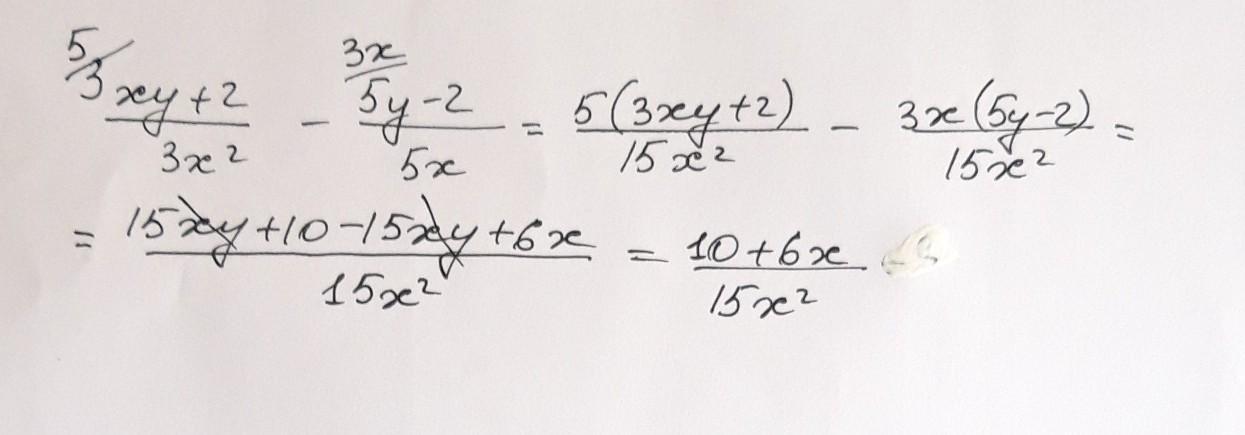 5/ 3xy+2 / 3x² - 3x/ 5y-2 / 5x = 5(3xy+2) / 15x² - 3x(5y-2) / 15x² =
= 15xy+10-15xy+6x / 15x² = 10+6x / 15x²